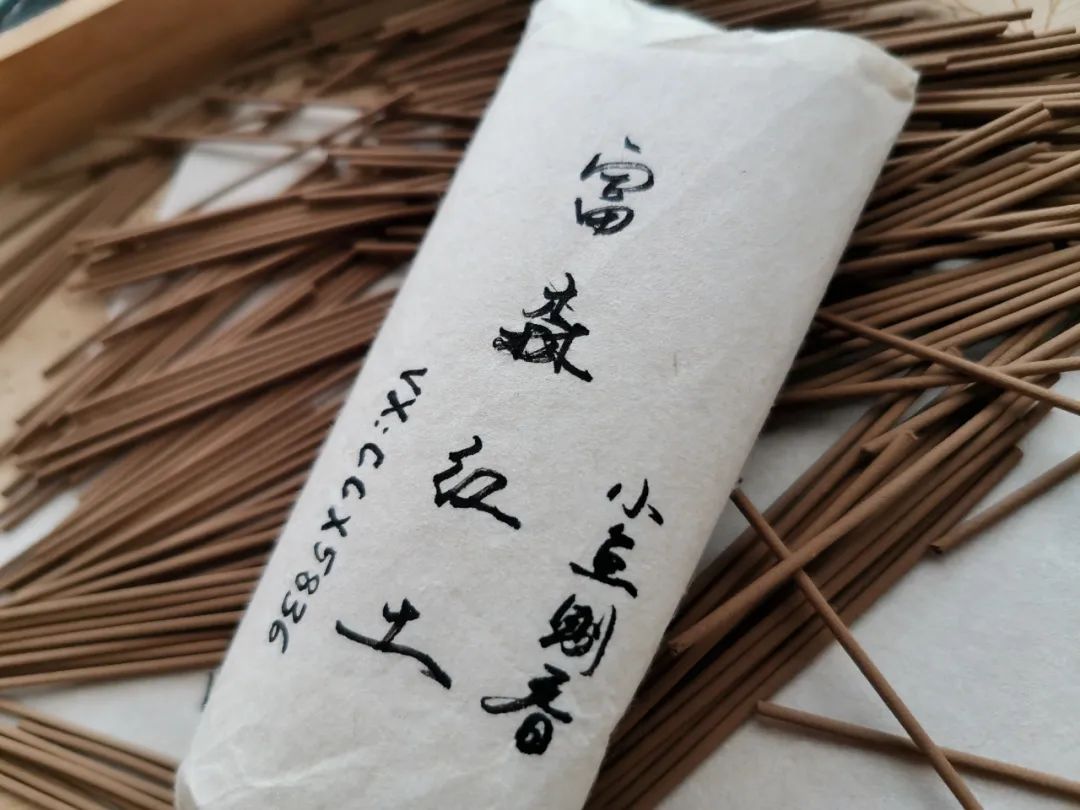 富森红土
小豆制香
VX:CCX5836